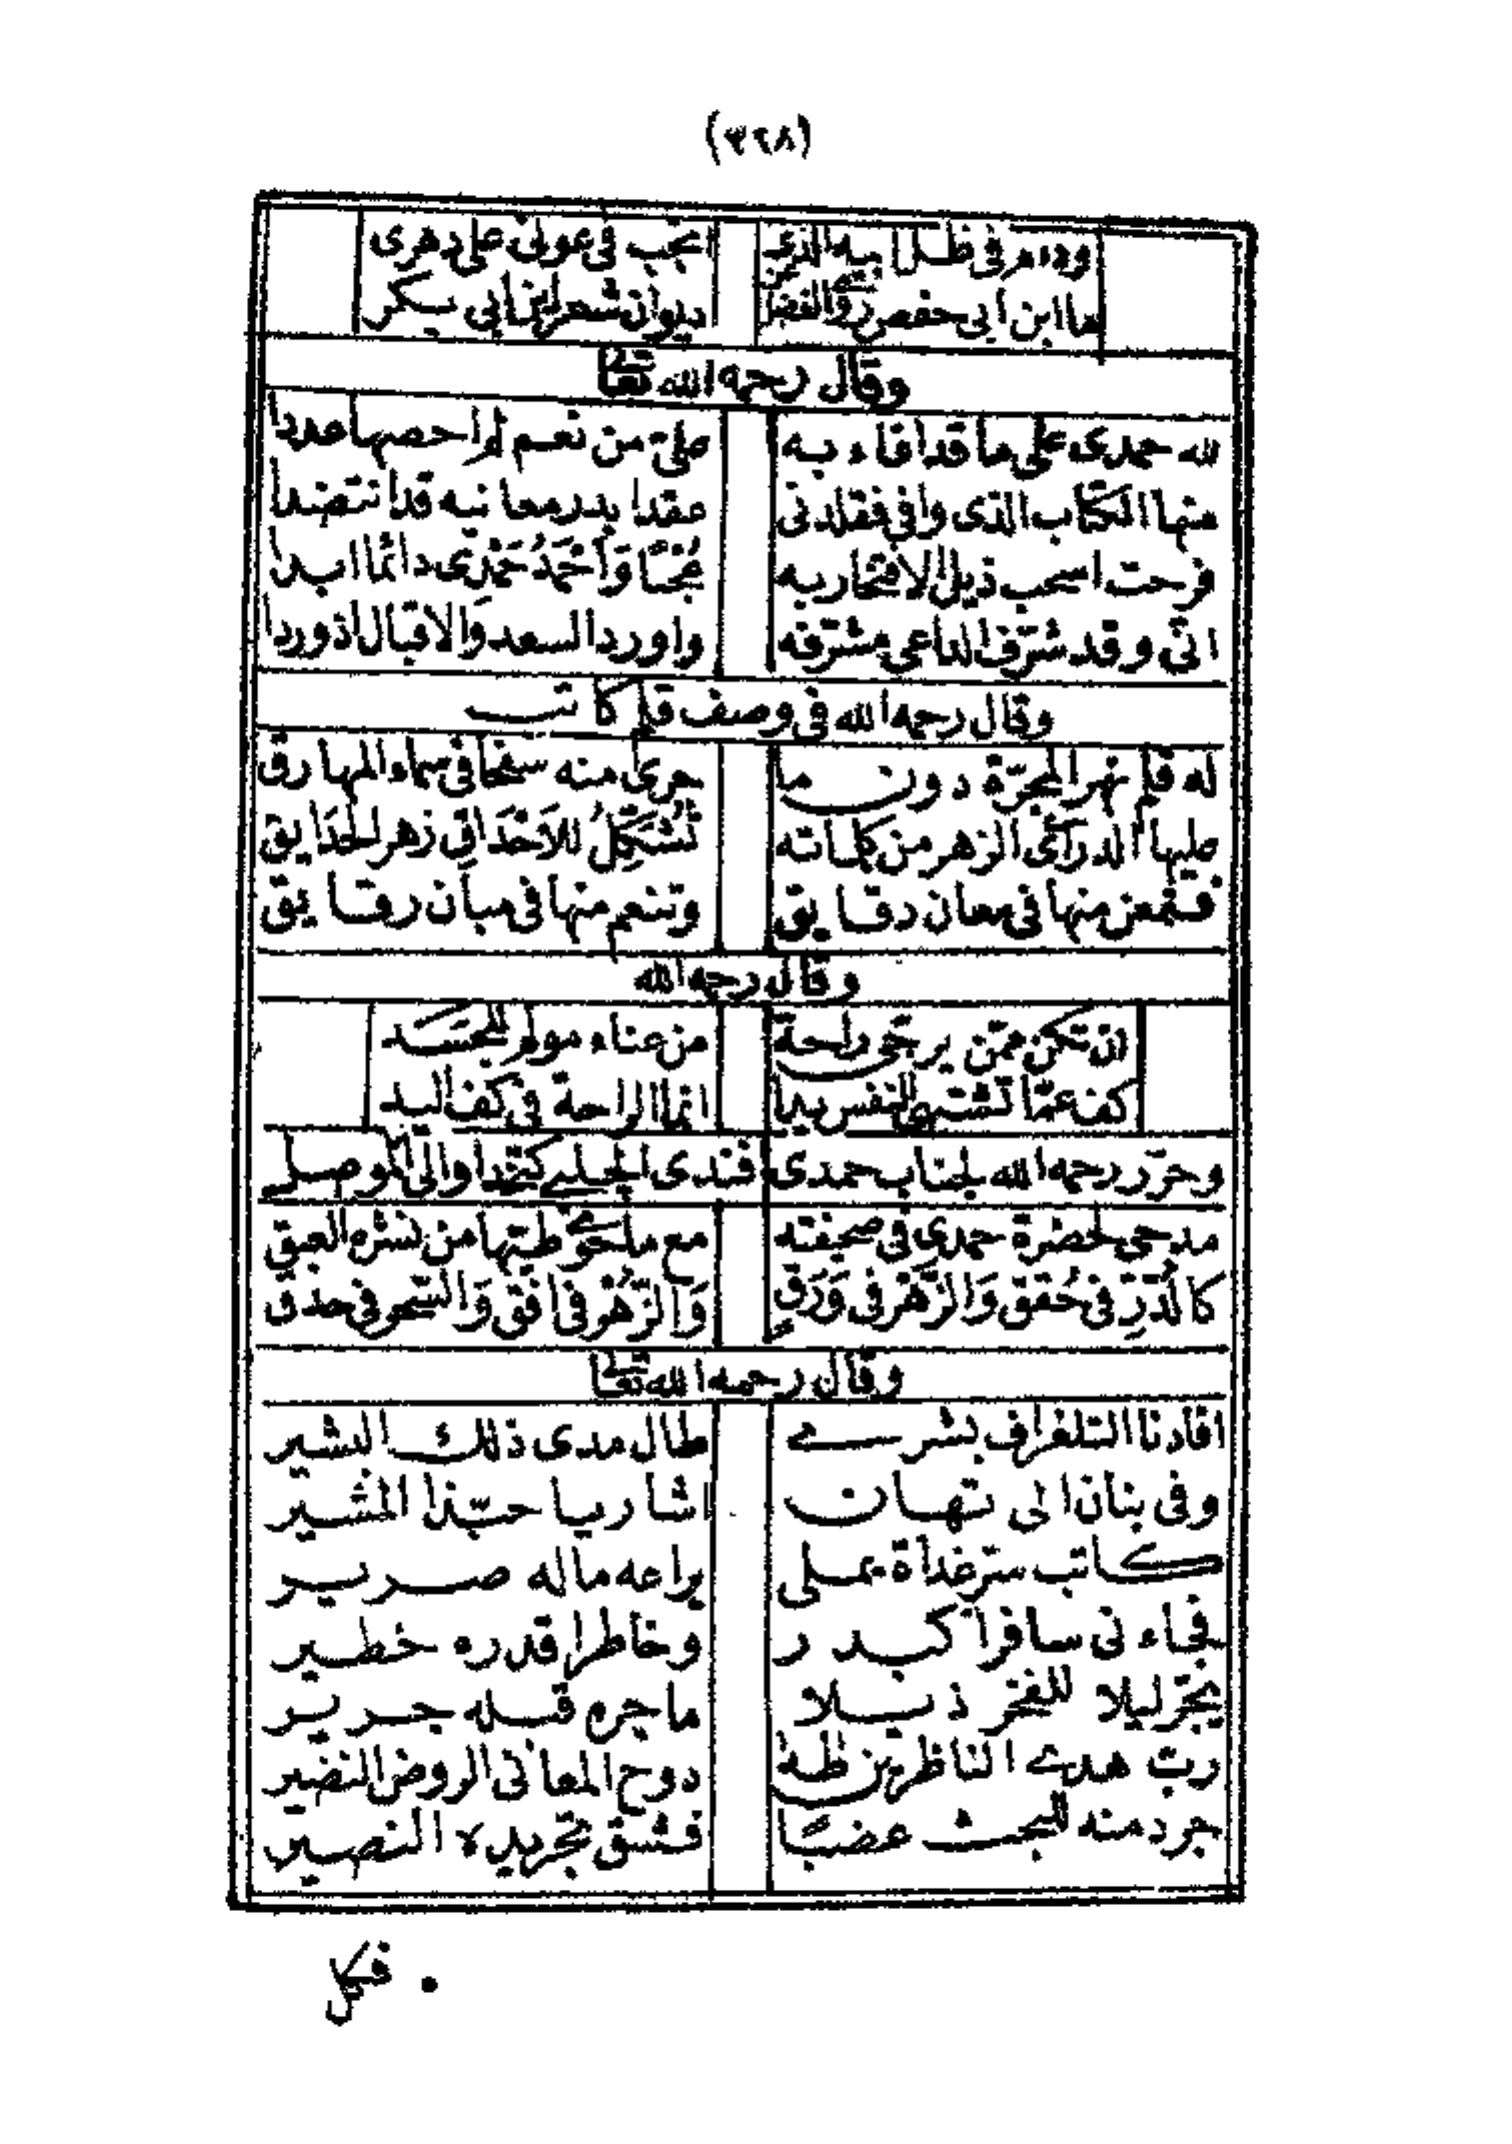 (٣٢٨)
ودام فى ظل ابيه الذى انجب فى عونى على دهرى
ما ابن ابى حفص روى الفضل من ديوان شعر ابن ابى بكر
وقال رحمه الله تعالى
لله حمدى على ما قد افاء به علىّ من نعم لم احصها عددا
منها الكتاب الذى وافى فقلدنى عقدا بدر معانيه قد انتضدا
فرحت اسحب ذيل الافتخار به عُجْبًا وَأحْمَدُ حَمْدِى دائما ابدا
انّى وقد شرّف الداعى مشرّفه واورد السعد وَالاقبال اذ وردا
وقال رحمه الله فى وصف قلم كاتب
له قلم نهر المجرّة دون ما جرى منه سفحا فى سماء المهارق
عليها الدرارى الزهر من كلماته تُشَكِّلُ للاَحْدَاقِ زهر الحَدَايق
فتمعن منها فى معان دقايق وتنعم منها فى مبان رقايق
وقال رحمه الله
ان تكن ممّن يرجّى راحة من عناء مولم للجسَد
كف عمّا تشتهى النفس يدا انما الراحة فى كف اليد
وحرّر رحمه الله لجناب حمدى افندى الجليلى كتخدا والى الموصل
مدحى لحضرة حمدى فى صحيفته مع ما حوى طيّها من نشره العبق
كالدّرِّ فى حُقَق وَالزّهْر فى وَرَقٍ وَالزُّهْر فى افق وَالسّحر فى حدق
وقال رحمه الله تعالى
افادنا التلغراف بشرى طال مدى ذلك البشير
وفى بنان الى تهان اشار بيا حبّذا المشير
كاتب سرّ غداة يملى يراعه ماله صرير
فجاءنى سافرا كبدر وخاطرا قدره خطير
يجرّ ليلا للفخر ذيلا ما جره قبله جرير
ربّ هدى الناظرين ظلا دوح المعانى الروض النضير
جرد منه للبحث عضبًا فشق تجريده النصير
فكل